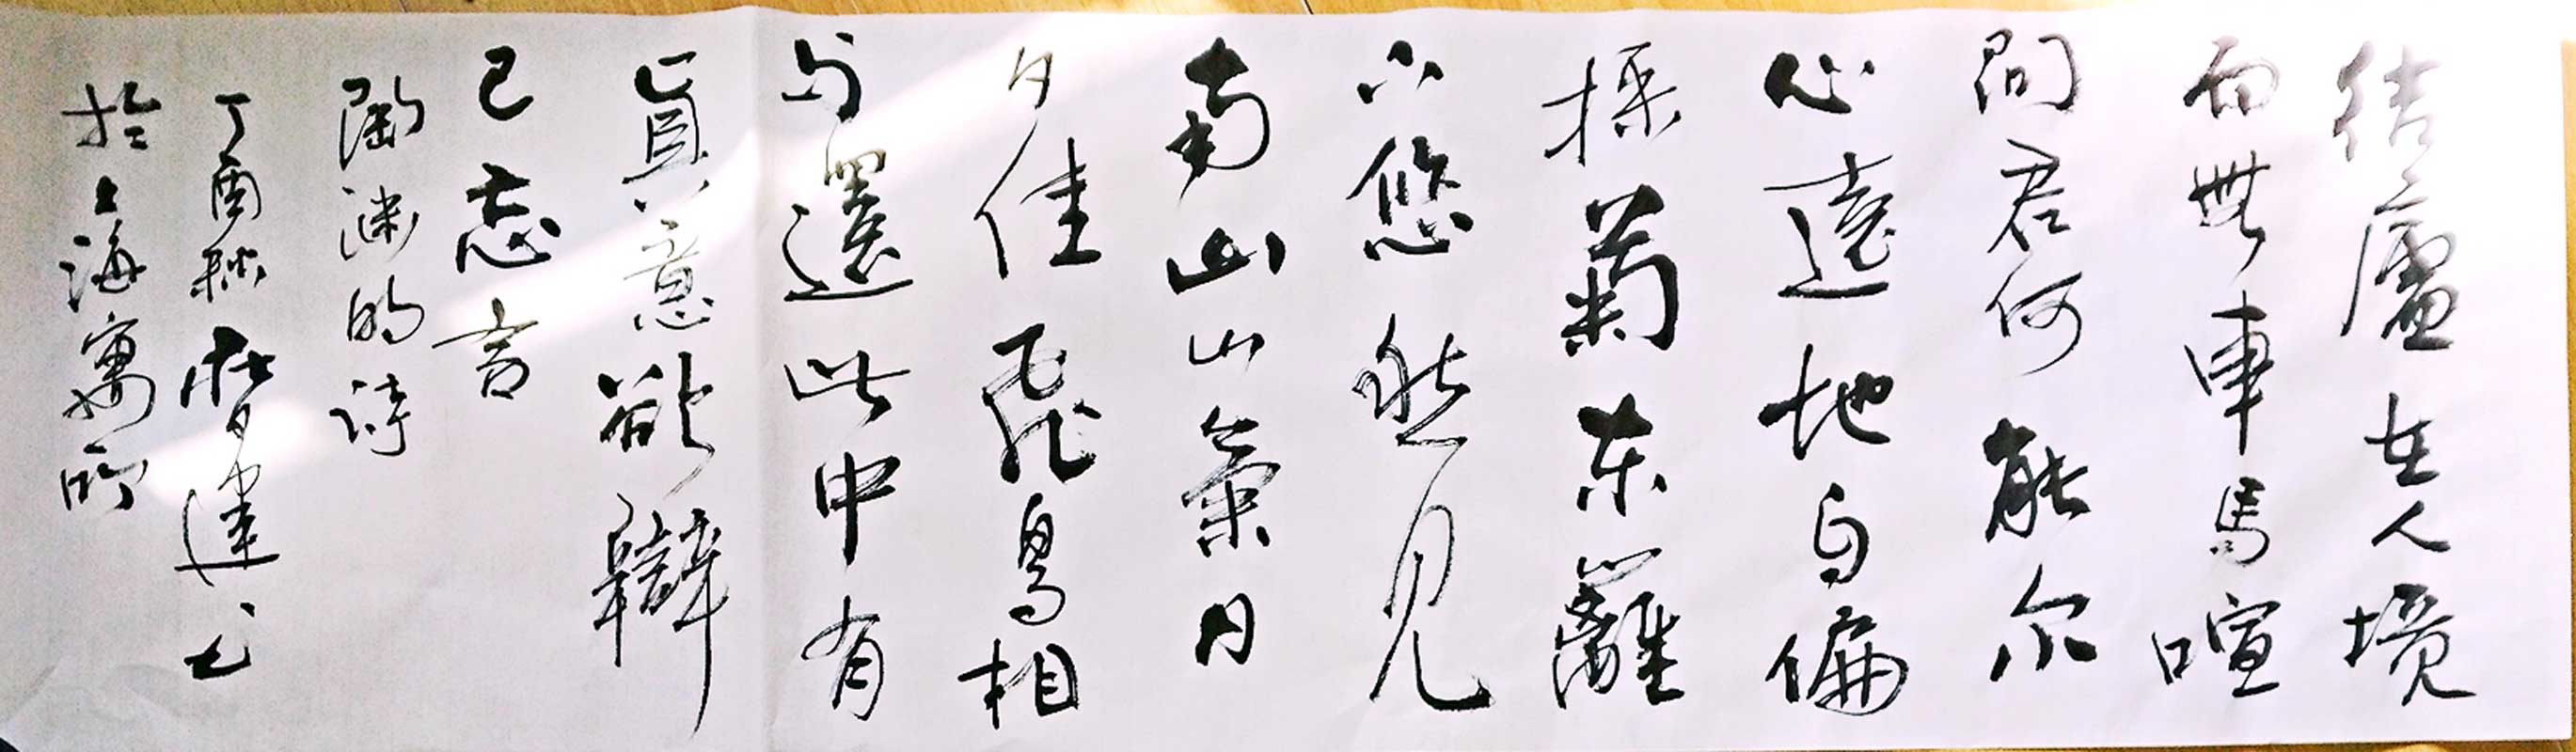 結廬在人境
而無車馬喧
问君何能尔
心遠地自偏
採菊东籬
下悠然见
南山山氣日
夕佳飛鳥相
与還此中有
真意欲辯
已忘言
陶渊明诗
丁酉秋
於上海寓所